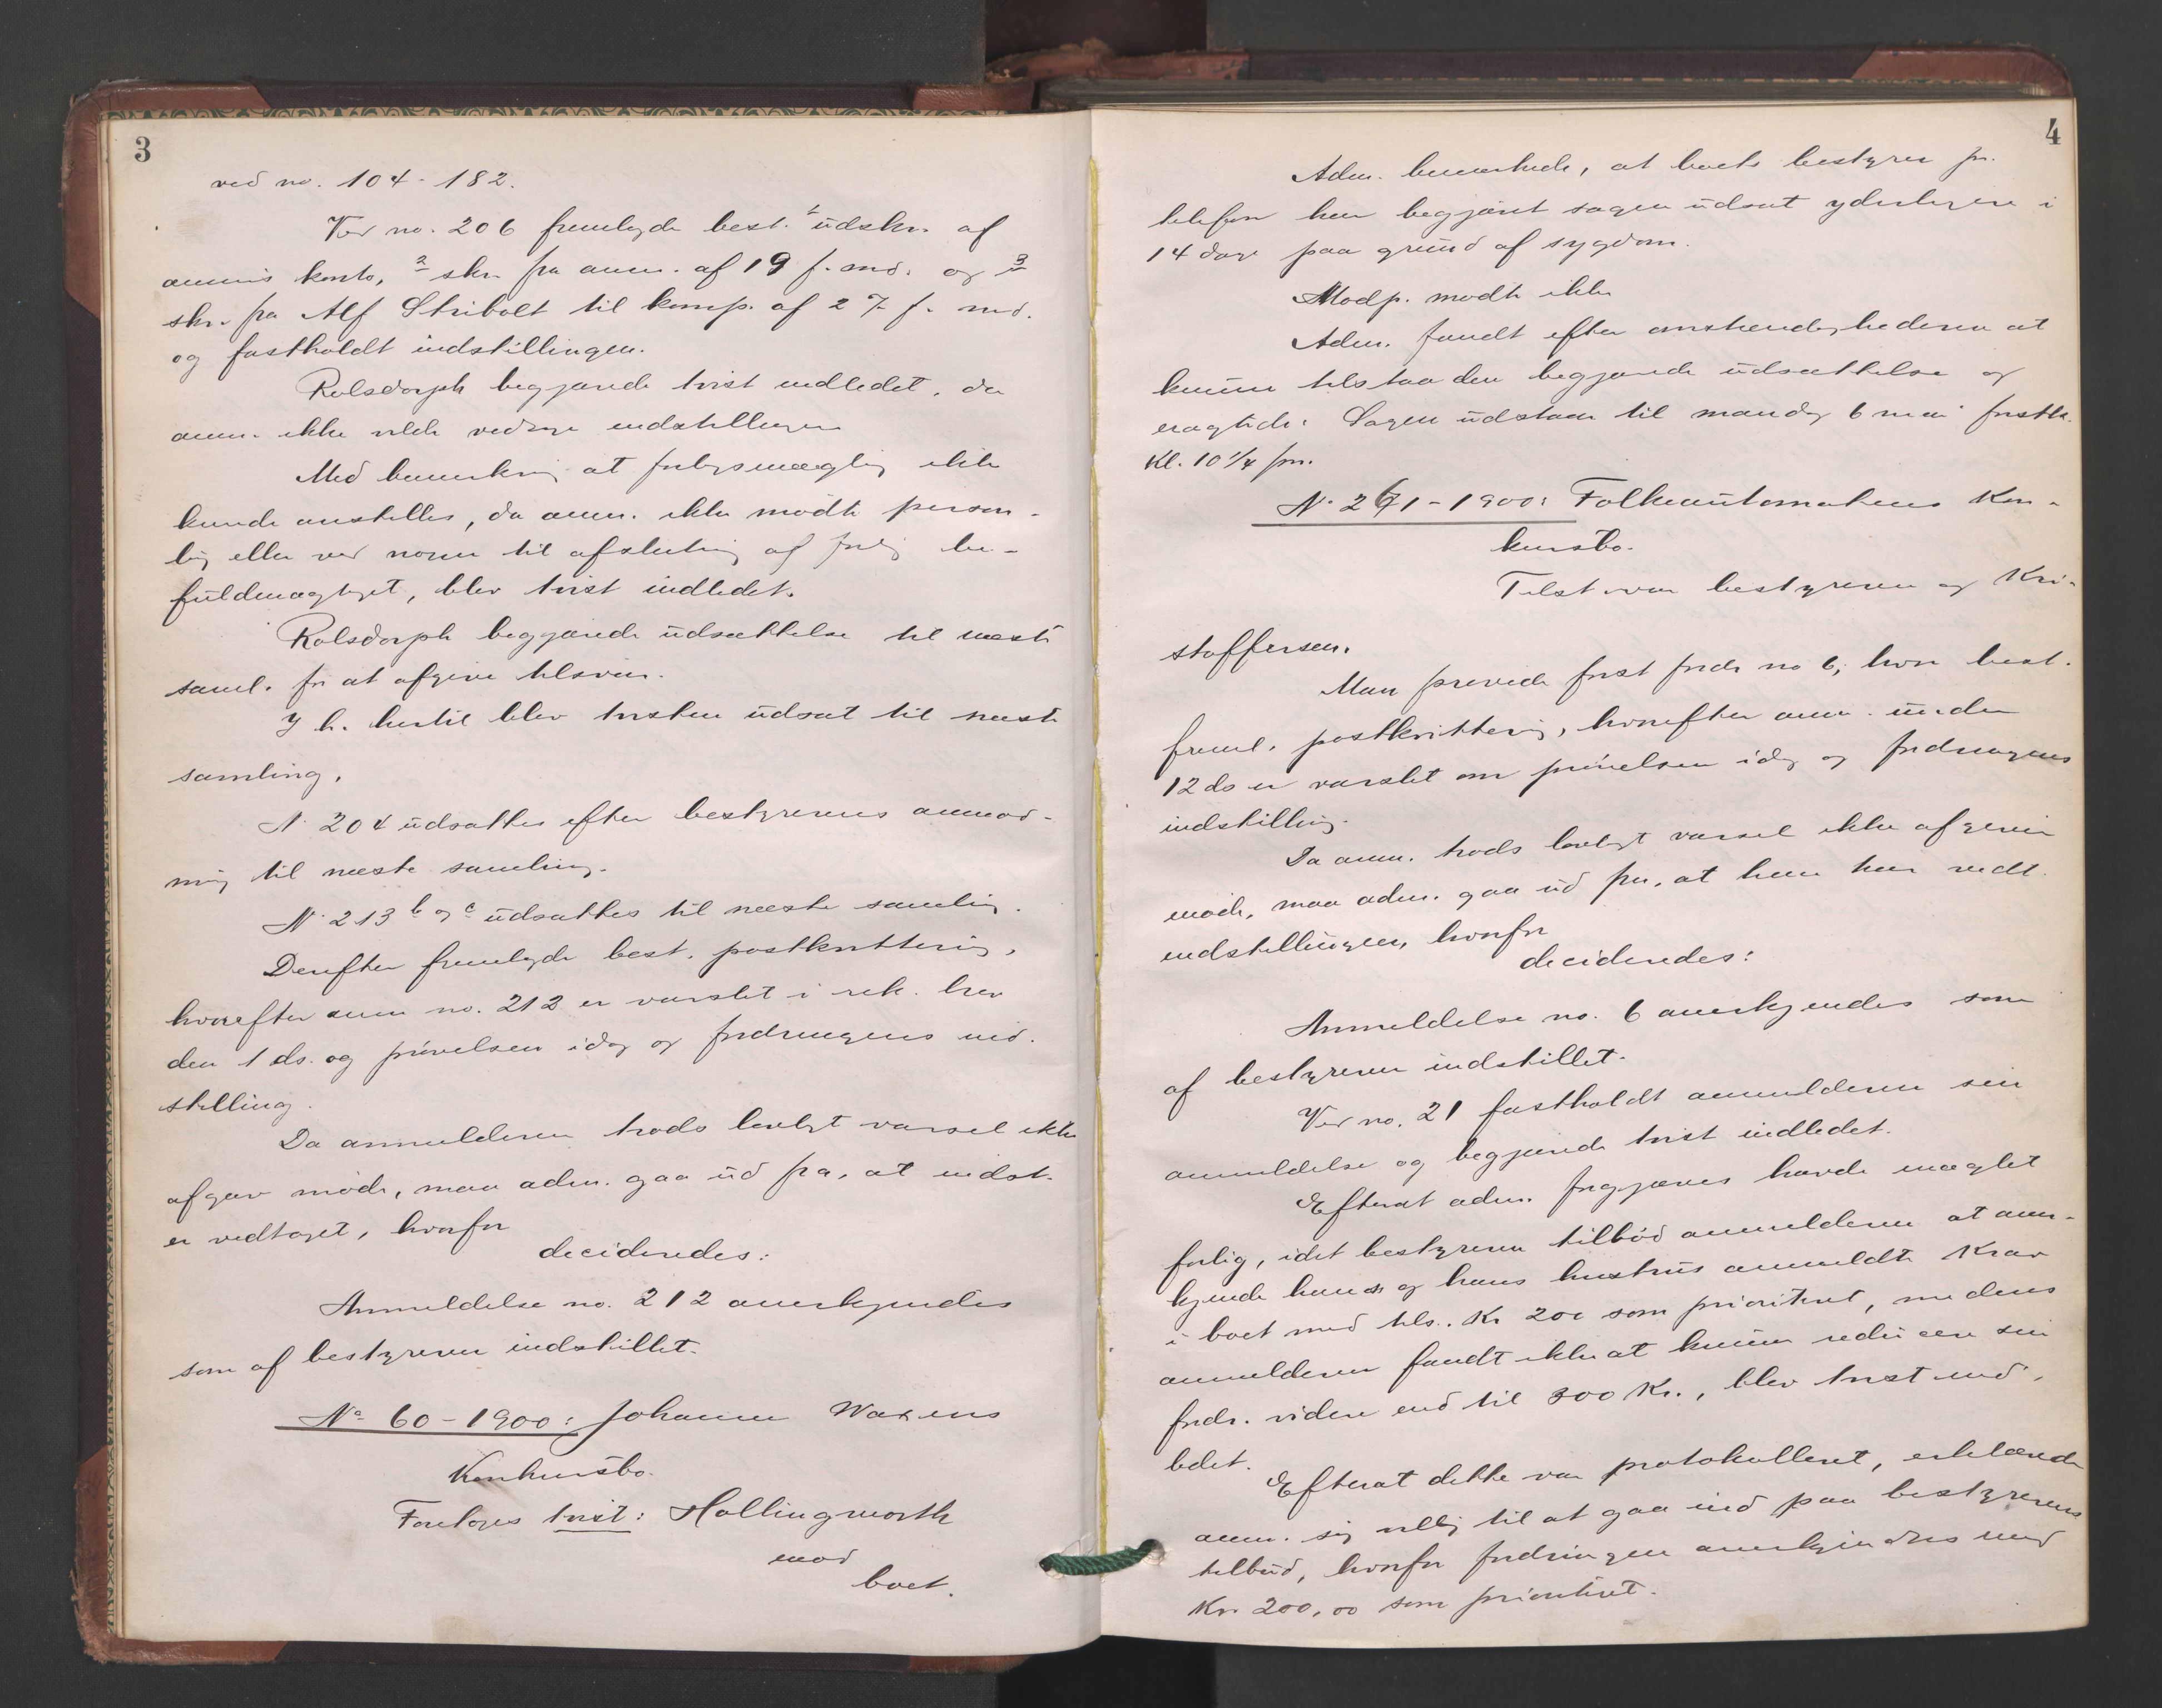 3
ved no. 104-182.
Ved no. 206 fremlagde best. 1 udskr. af
anm's konto, 2 skr. fra anm. af 19 f. md. og 3
skr. fra Alf Stribolt til komp. af 27 f. md.
og fastholdt indstillingen.
Rolsdorph begjærede tvist indledet, da
anm. ikke vilde vedtage indstillingen
Med bemærkning at forligsmægling ikke
kunde anstilles, da anm. ikke mødte person-
lig eller ved nogen til afslutning af forlig be-
fuldmægtiget, blev tvist indledet.
Rolsdorph begjærede udsættelse til næste
saml. for at afgive tilsvar.
I h. hertil blev tvisten udsat til næste
samling.
N. 204 udsattes efter bestyrerens anmod-
ning til næste samling.
N. 213 b og c udsattes til næste samling.
Derefter fremlagde best. postkvittering,
hvorefter anm no. 212 er varslet i rek. brev
den 1 ds. og prøvelsen idag og fordringens ind-
stilling.
Da anmelderen trods lovligt varsel ikke
afgav møde, maa adm. gaa ud fra, at indst.
er vedtaget, hvorfor
decideredes:
Anmeldelse no. 212 anerkjendes
som af bestyreren indstillet.
No 60-1900: Johanne Waxens
Konkursbo.
Foretoges tvist: Hollingworth
mod
boet.
4
Adm. bemærkede, at boets bestyrer pr.
telefon har begjært sagen udsat yderligere i
14 dage paa grund af sygdom.
Modp. mødte ikke
Adm. fandt efter omstændighederne at
kunne tilstaa den begjærede udsættelse og
eragtede: Sagen udstaar til mandag 6 mai førstk.
Kl. 10 1/4 fm.
N. 261-1900: Folkeautomatens Kon-
kursbo.
Tilst. var bestyreren og Kri-
stoffersen.
Man prøvede først fordr no 6, hvor best.
freml. postkvittering, hvorefter anm. under
12 ds er varslet om prøvelsen idag og fordringens
indstilling.
Da anm. trods lovligt varsel ikke afgiver
møde, maa adm. gaa ud fra, at han har vedt.
indstillingen, hvorfor
decideredes:
Anmeldelse no. 6 anerkjendes som
af bestyreren indstillet.
Ved no. 21 fastholdt anmelderen sin
anmeldelse og begjærede tvist indledet.
Efterat adm. forgjæves havde mæglet
forlig, idet bestyreren tilbød anmelderen at aner-
kjende hans og hans hustrus anmeldte Krav
i boet med tils. Kr 200 som prioriteret, medens
anmelderen fandt ikke at kunne reducere sin
fordr. videre end til 300 Kr., blev tvist ind-
ledet.
Efterat dette var protokolleret, erklærede
anm. sig villig til at gaa ind paa bestyrerens
tilbud, hvorfor fordringen anerkjendtes med
Kr. 200,00 som prioriteret.